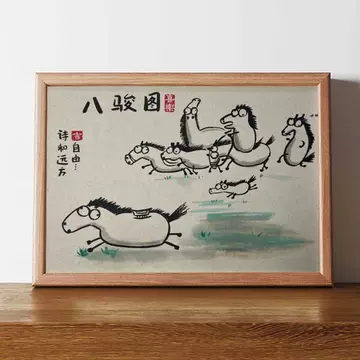 八骏图
自由…
诗和远方